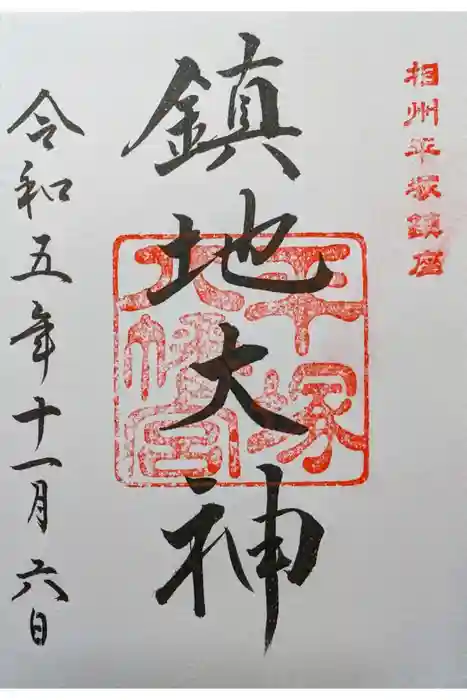 相州平塚鎮座
鎮地大神
平塚
八幡宮
令和五年十一月六日